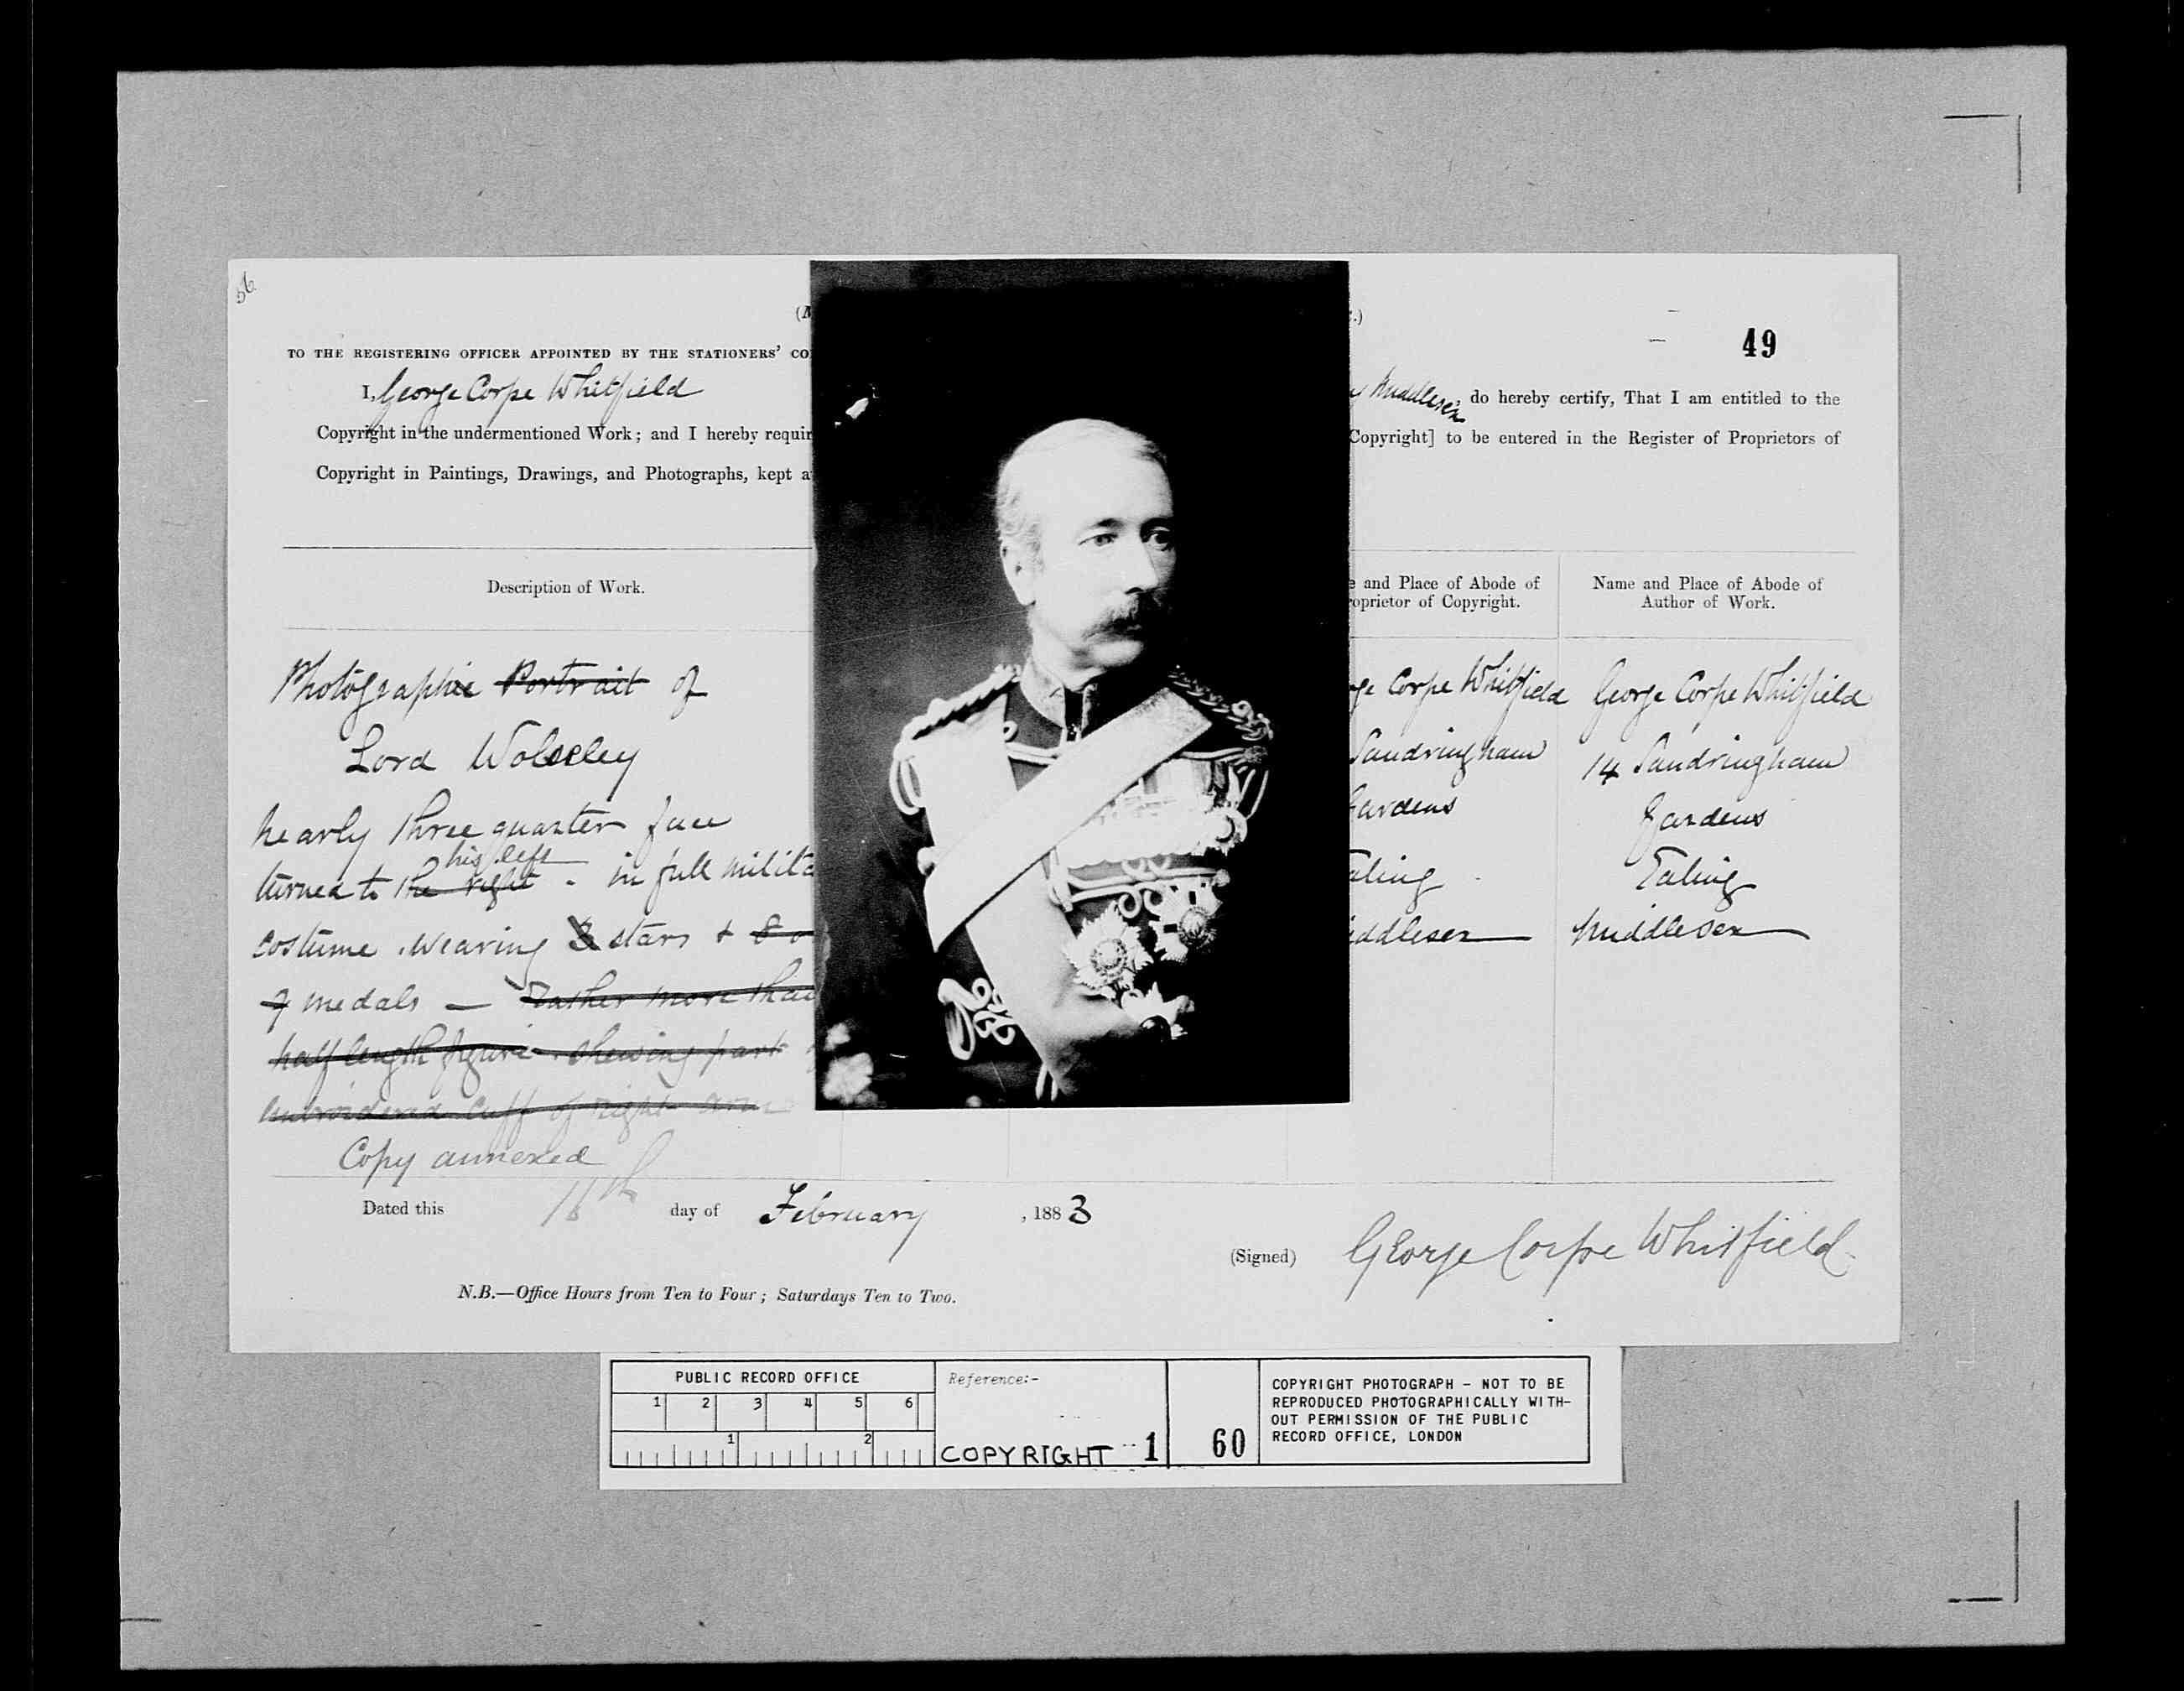 56
49
TO THE REGISTERING OFFICER APPOINTED BY THE STATIONERS' CO
I, George Corpe Whitfield Middlesex, do hereby certify, That I am entitled to the
Copyright in the undermentioned Work; and I hereby requir Copyright] to be entered in the Register of Proprietors of
Copyright in Paintings, Drawings, and Photographs, kept a
Description of Work.
e and Place of Abode of
roprietor of Copyright.
Name and Place of Abode of
Author of Work.
Photographic Portrait of
Lord Wolseley
nearly three quarter face
his left
turned to the right - in full milita
costume. wearing 3 stars + 8 o
7 medals — Rather more than
half length figure - shewing part
embroidered cuff of right arm
Copy annexed
ge Corpe Whitfield
Sandringham
Gardens
aling
iddlesex
George Corpe Whitfield
14 Sandringham
Gardens
Ealing
Middlesex
Dated this 16th day of February, 1883
(Signed) George Corpe Whitfield
N.B.—Office Hours from Ten to Four; Saturdays Ten to Two.
PUBLIC RECORD OFFICE
1 2 3 4 5 6
1 2
Reference:-
COPYRIGHT 1 60
COPYRIGHT PHOTOGRAPH - NOT TO BE
REPRODUCED PHOTOGRAPHICALLY WITH-
OUT PERMISSION OF THE PUBLIC
RECORD OFFICE, LONDON